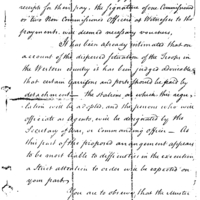 receipts for their pay, the signature of one Commissioned
or two Non Commissioned Officers as Witnesses to the
payments, was deemed necessary vouchers.
It has been already intimated that on
account of the dispersed situation of the Troops in
the Western Country it has been judged advisable
that certain Garrisons and posts should be paid by
detachment — The Stations, at which this regu-
lation will be adopted, and the persons who will
officiate as Agents, will be designated by the
Secretary of War, or Commanding officer — As
this part of the proposed arrangement appears
to be most liable to difficulties in the execution,
a Strict attention to order will be expected on
your part.
You are to observe, that the Muster